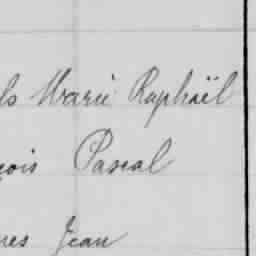 ls Marie Raphaël
çois Pascal
res Jean